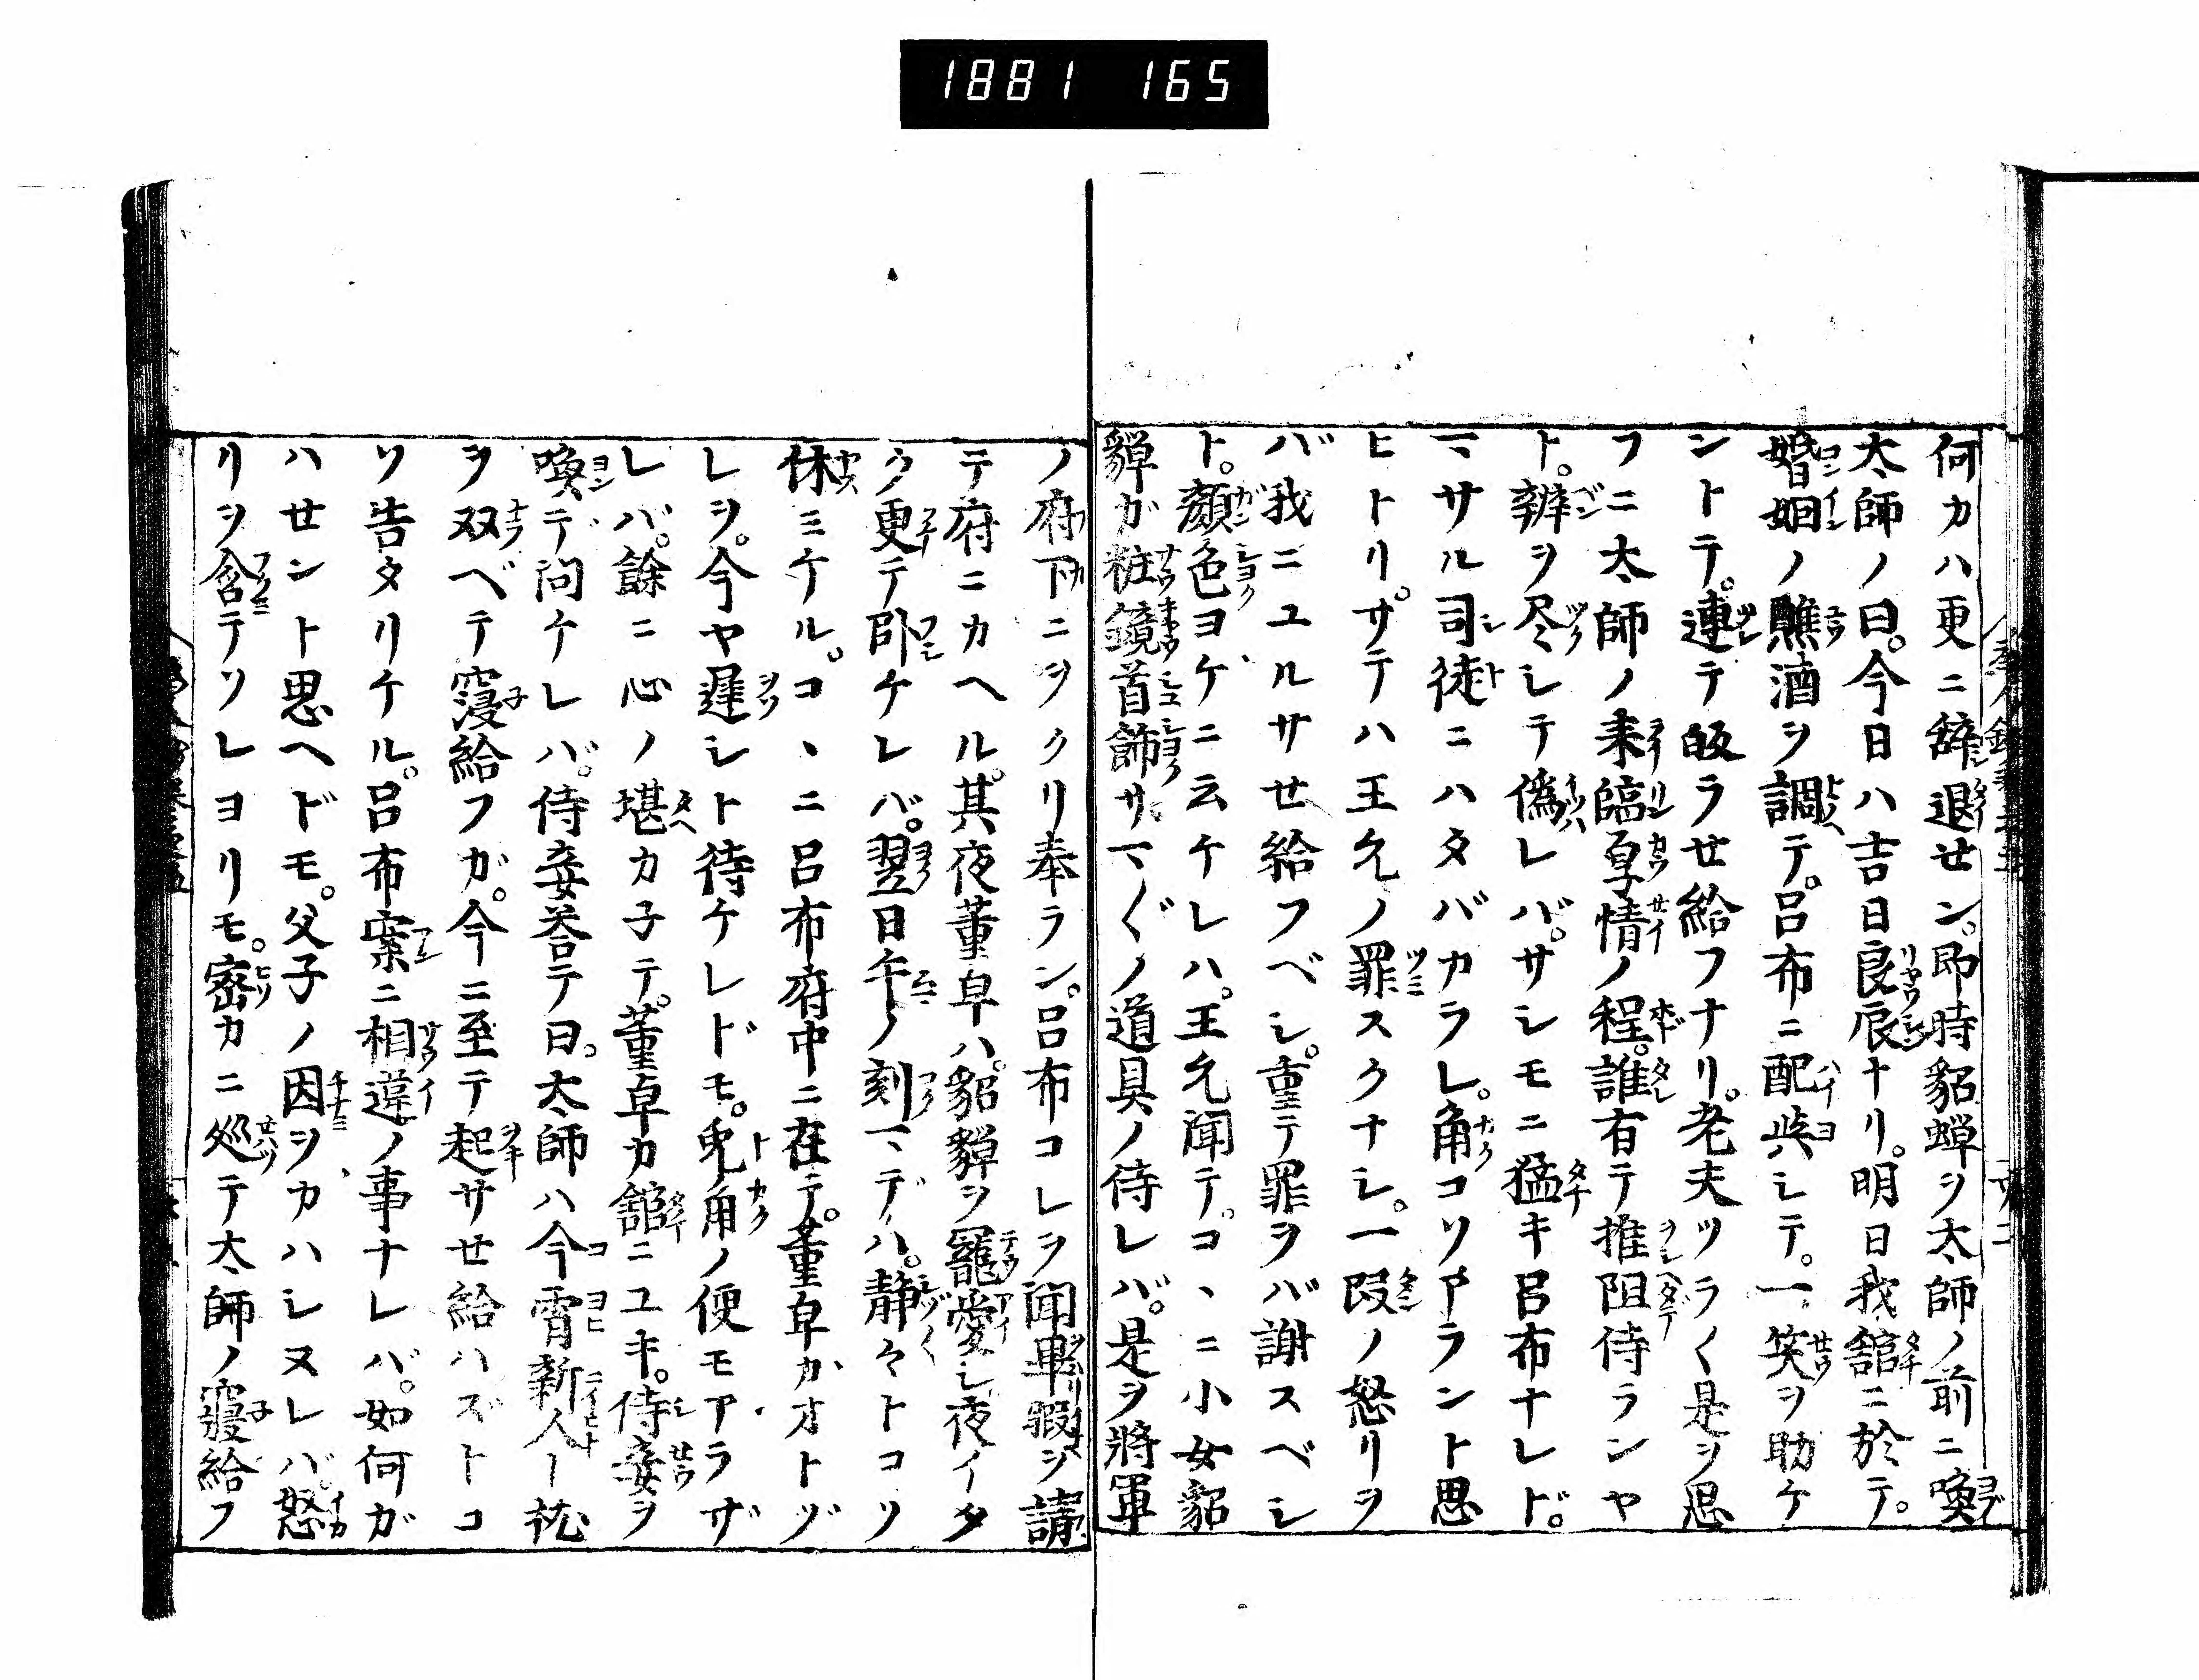 1881 165
何カハ更ニ辞退せン。即時貂蝉ヲ太師ノ前ニ喚
太師ノ曰。今日ハ吉日良辰ナリ。明日我舘ニ於テ。
婚姻ノ醮酒ヲ調テ。呂布ニ配与シテ。一笑ヲ助ケ
ントテ。連テ皈ラせ給フナリ。老夫ツラ〱是ヲ思
フニ太師ノ来臨厚情ノ程。誰有テ推阻侍ランヤ
ト。辨ヲ尽シテ偽レバ。サシモニ猛キ呂布ナレド。
マサル司徒ニハタバカラレ。角コソアラント思
ヒトリ。サテハ王允ノ罪スクナシ。一段ノ怒リヲ
バ我ニユルサせ給フベシ。重テ罪ヲバ謝スベシ
ト。顔色ヨゲニ云ケレハ。王允聞テ。コヽニ小女貂
蝉ガ粧鏡首飾サマ〲ノ道具ノ侍レバ。是ヲ將軍
ノ府下ニヲクリ奉ラン。呂布コレヲ聞畢暇ヲ請
テ府ニカヘル。其夜董卓ハ。貂蝉ヲ寵愛シ夜イタ
ク更テ卧ケレバ。翌日午ノ刻マデハ。静々トコソ
休ミケル。コヽニ呂布府中ニ在テ。董卓カオトヅ
レヲ。今ヤ遅シト待ケレドモ。兎角ノ便モアラザ
レバ。餘ニ心ノ堪カ子テ。董卓カ舘ニユキ。侍妾ヲ
喚デ問ケレバ。侍妾荅テ曰。太師ハ今霄新人ト枕
ヲ双ベテ寝給フガ。今ニ至テ起サせ給ハズトコ
ソ告タリケル。呂布案ニ相違ノ事ナレバ。如何ガ
ハせント思ヘドモ。父子ノ因ヲカハシヌレバ。怒
リヲ含テソレヨリモ。密カニ廵テ太師ノ寝給フ